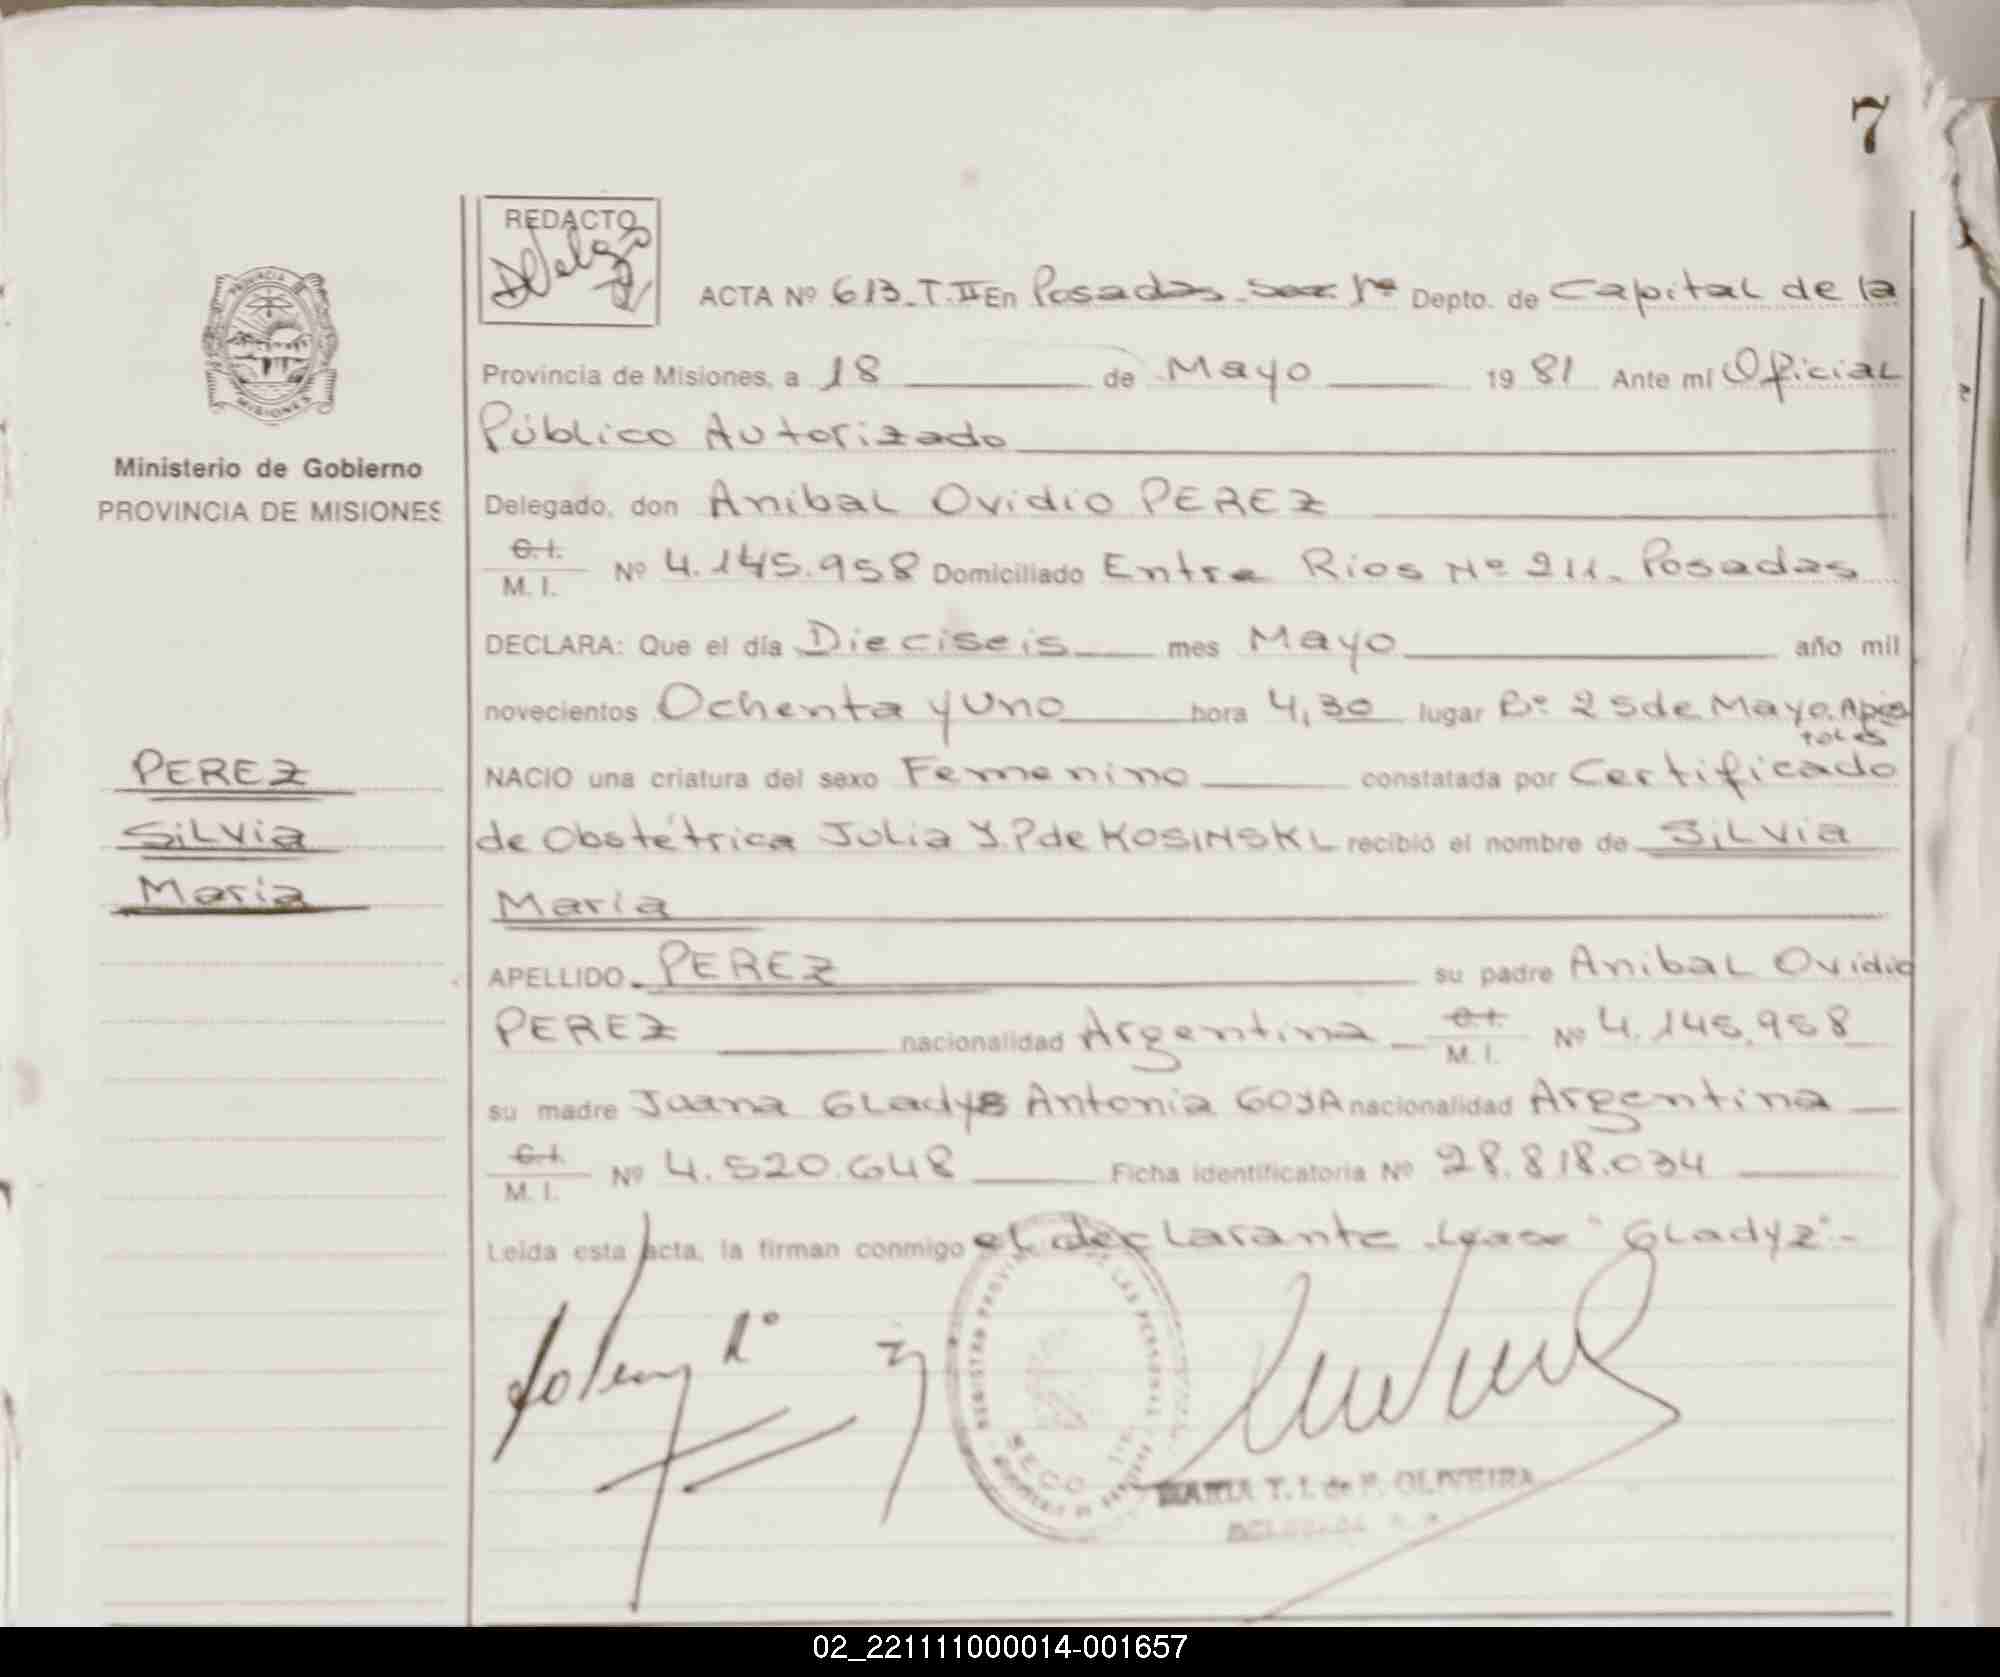 7
REDACTO
PROVINCIA DE
MISIONES
Ministerio de Gobierno
PROVINCIA DE MISIONES
ACTA Nº 613-T.II En Posadas Sec 1ª Depto. de Capital de la
Provincia de Misiones, a 18 de Mayo 1981 Ante mí Oficial
Público Autorizado
Delegado, don Anibal Ovidio PEREZ
C.I.
M. I. Nº 4.145.958 Domiciliado Entre Rios Nº 211. Posadas
DECLARA: Que el día Dieciseis mes Mayo año mil
novecientos Ochenta y Uno hora 4,30 lugar Bº 25 de Mayo. Após
toles
NACIO una criatura del sexo Femenino constatada por Certificado
de Obstétrica Julia Y. P de KOSINSKI recibió el nombre de Silvia
Maria
PEREZ
Silvia
Maria
APELLIDO PEREZ su padre Anibal Ovidio
PEREZ nacionalidad Argentina C.I.
M. I. Nº 4.145.958
su madre Juana GLadys Antonia GOYA nacionalidad Argentina
C.I.
M. I. Nº 4.520.648 Ficha identificatoria Nº 28.818.034
Leída esta acta, la firman conmigo el declarante. Lease "GLadyz".-
REGISTRO PROVINCIAL DE LAS PERSONAS
SECC.
MARIA T. I. de P. OLIVEIRA
02_221111000014-001657